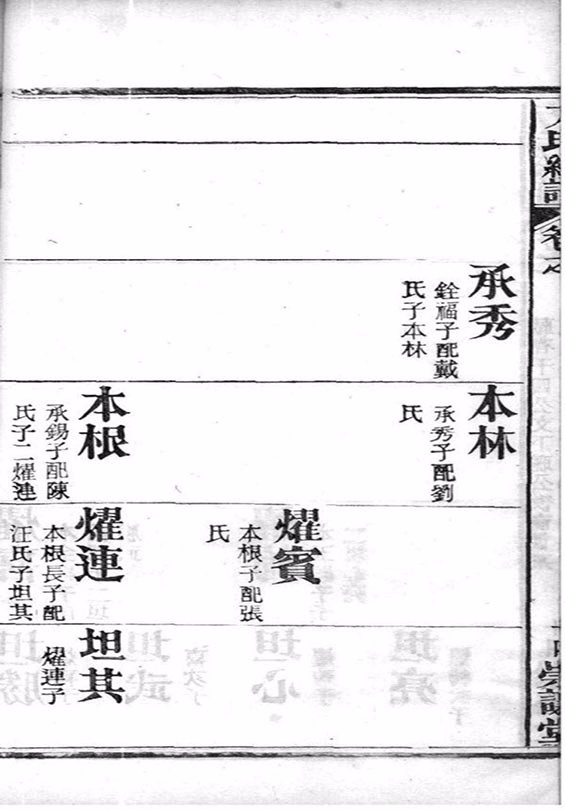 承秀
銓福子配戴
氏子本林
本林
承秀子配劉
氏
本根
承錫子配陳
氏子二燿連
燿賓
本根子配張
氏
燿連
本根長子配
汪氏子坦其
坦其
燿連子